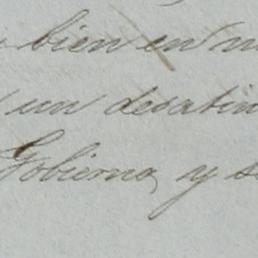 bien en
un desatin
Gobierno, y s